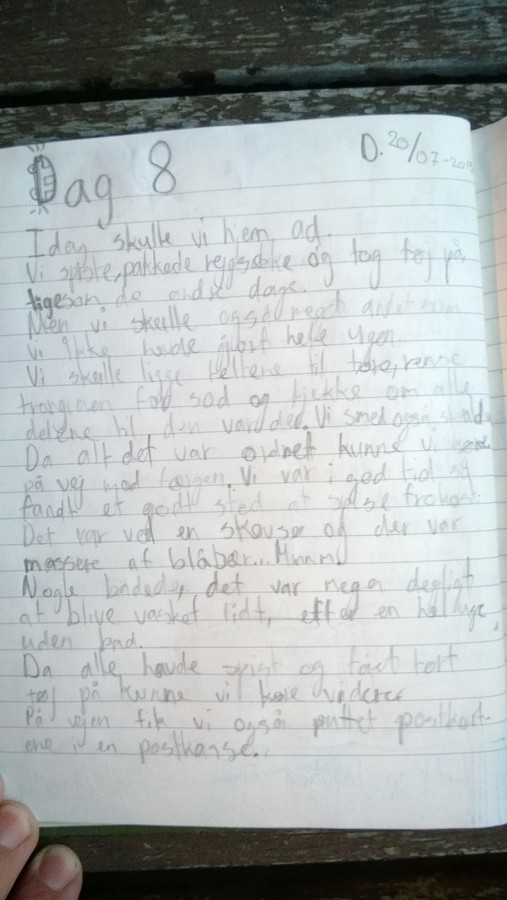 Dag 8
D. 20/07-20
I dag skulle vi hjem ad.
Vi spiste, pakkede rejgsække og tog tøj på,
ligesom de andre dage.
Men vi skulle også noget andet som
vi ikke havde gjort hele ugen.
Vi skulle ligge teltene til tøre, rense
for sod og tjekke om alle
delene til den var der. Vi også
Da alt det var ordnet kunne vi
på vej mod færgen. Vi var i god tid og
fandt et godt sted at spise frokost.
Det var ved en skovsø og der var
massere af blåbær... Mmmm!
Nogle badede, det var meget dejligt
at blive vasket lidt, efter en hel uge,
uden bad.
Da alle havde spist og fået tørt
tøj på kunne vi køre videre
På vejen fik vi også puttet postkort-
ene i en postkasse..